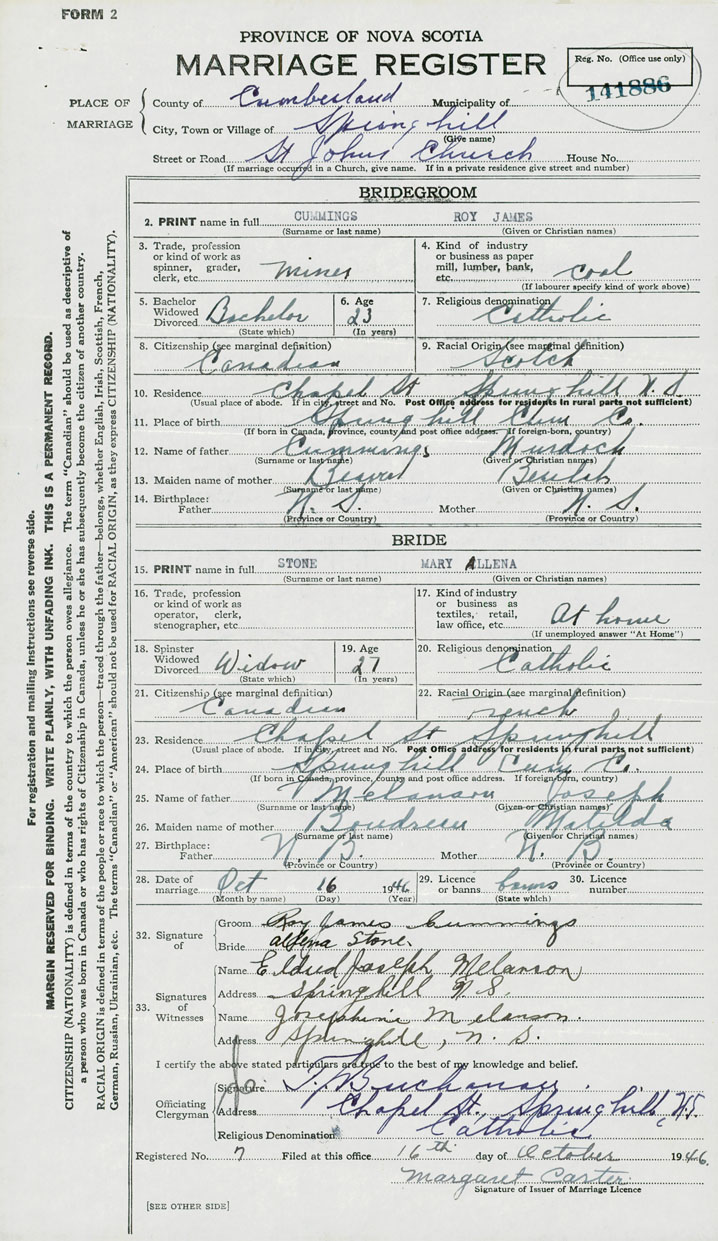 FORM 2
PROVINCE OF NOVA SCOTIA
MARRIAGE REGISTER
Reg. No. (Office use only)
141886
PLACE OF MARRIAGE
County of Cumberland Municipality of
City, Town or Village of Springhill
(Give name)
Street or Road St Johns Church House No.
(If marriage occurred in a Church, give name. If in a private residence give street and number)
BRIDEGROOM
2. PRINT name in full CUMMINGS ROY JAMES
(Surname or last name) (Given or Christian names)
3. Trade, profession or kind of work as spinner, grader, clerk, etc. miner
4. Kind of industry or business as paper mill, lumber, bank, etc. coal
(If labourer specify kind of work above)
5. Bachelor Widowed Divorced Bachelor
(State which)
6. Age 23
(In years)
7. Religious denomination Catholic
8. Citizenship (see marginal definition) Canadian
9. Racial Origin (see marginal definition) Scotch
10. Residence Chapel St Springhill N.S.
(Usual place of abode. If in city, street and No. Post Office address for residents in rural parts not sufficient)
11. Place of birth Springhill Cum C.
(If born in Canada, province, county and post office address. If foreign-born, country)
12. Name of father Cummings Murdoch
(Surname or last name) (Given or Christian names)
13. Maiden name of mother Beaver Beulah
(Surname or last name) (Given or Christian names)
14. Birthplace:
Father N. S. Mother N. S.
(Province or Country) (Province or Country)
BRIDE
15. PRINT name in full STONE MARY ALLENA
(Surname or last name) (Given or Christian names)
16. Trade, profession or kind of work as operator, clerk, stenographer, etc
17. Kind of industry or business as textiles, retail, law office, etc. At home
(If unemployed answer "At Home")
18. Spinster Widowed Divorced Widow
(State which)
19. Age 27
(In years)
20. Religious denomination Catholic
21. Citizenship (see marginal definition) Canadian
22. Racial Origin (see marginal definition) French
23. Residence Chapel St Springhill
(Usual place of abode. If in city, street and No. Post Office address for residents in rural parts not sufficient)
24. Place of birth Springhill Cum C.
(If born in Canada, province, county and post office address. If foreign-born, country)
25. Name of father Melanson Joseph
(Surname or last name) (Given or Christian names)
26. Maiden name of mother Boudreau Matilda
(Surname or last name) (Given or Christian names)
27. Birthplace:
Father N. B. Mother N. B
(Province or Country) (Province or Country)
28. Date of marriage Oct 16 1946
(Month by name) (Day) (Year)
29. Licence or banns banns
(State which)
30. Licence number
32. Signature of
Groom Roy James Cummings
Bride allena Stone
33. Signatures of Witnesses
Name Eldred Joseph Melanson
Address Springhill N. S.
Name Josephine Melanson.
Address Springhill, N. S.
I certify the above stated particulars are true to the best of my knowledge and belief.
Officiating Clergyman
Signature J. Buchanan.
Address Chapel St., Springhill N.S.
Religious Denomination Catholic
Registered No. 7 Filed at this office 16th day of October 1946.
Margaret Carter
Signature of Issuer of Marriage Licence
[SEE OTHER SIDE]
For registration and mailing instructions see reverse side.
MARGIN RESERVED FOR BINDING. WRITE PLAINLY, WITH UNFADING INK. THIS IS A PERMANENT RECORD.
CITIZENSHIP (NATIONALITY) is defined in terms of the country to which the person owes allegiance. The term "Canadian" should be used as descriptive of
a person who was born in Canada or who has rights of Citizenship in Canada, unless he or she has subsequently become the citizen of another country.
RACIAL ORIGIN is defined in terms of the people or race to which the person—traced through the father—belongs, whether English, Irish, Scottish, French,
German, Russian, Ukrainian, etc. The terms "Canadian" or "American" should not be used for RACIAL ORIGIN, as they express CITIZENSHIP (NATIONALITY).